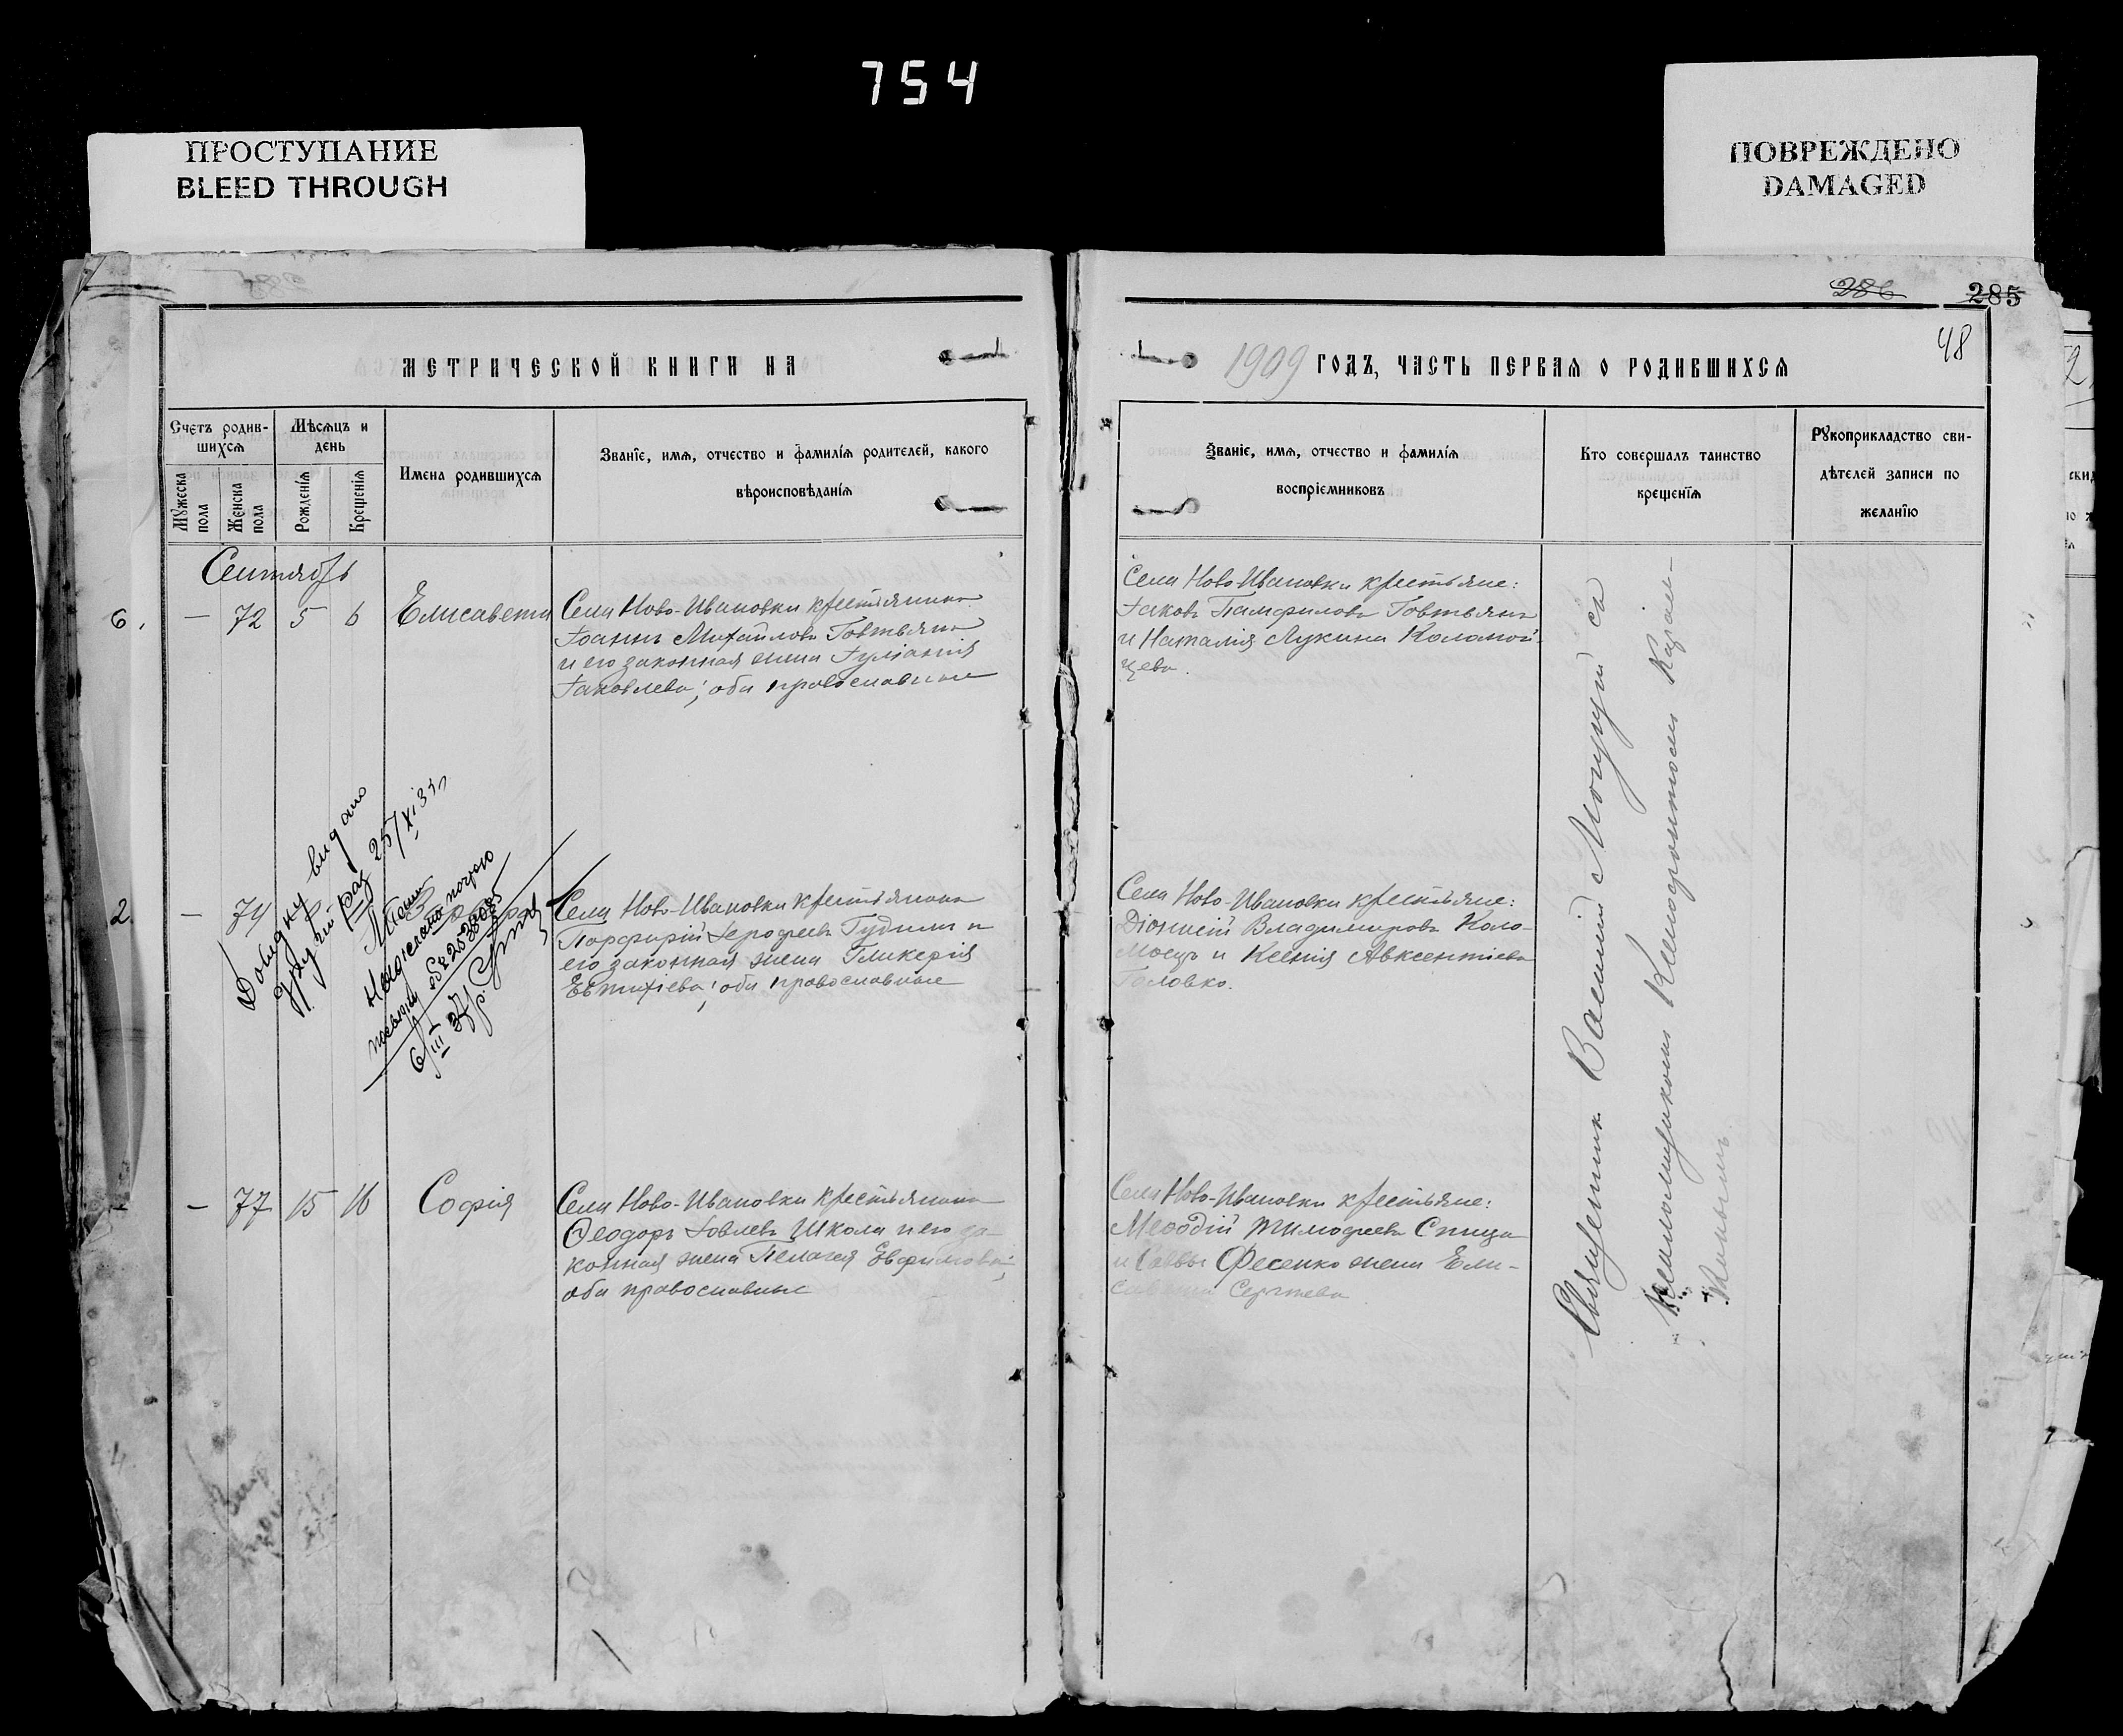 754
ПРОСТУПАНИЕ
BLEED THROUGH
ПОВРЕЖДЕНО
DAMAGED
286 285
48
МЕТРИЧЕСКОЙ КНИГИ НА
1909 ГОДЪ, ЧАСТЬ ПЕРВАЯ О РОДИВШИХСЯ
Счетъ родив-
шихся
Мѣсяцъ и
день
Мужеска
пола
Женска
пола
Рожденія
Крещенія
Имена родившихся
Званіе, имя, отчество и фамилія родителей, какого
вѣроисповѣданія
Званіе, имя, отчество и фамилія
воспріемниковъ
Кто совершалъ таинство
крещенія
Рукоприкладство сви-
дѣтелей записи по
желанію
Сентябрь
6. — 72 5 6 Елисавета
Села Ново-Ивановки крестьянинъ
Іоаннъ Михайловъ Говтвянъ
и его законная жена Іуліанія
Іаковлева; оба православные
Села Ново-Ивановки крестьяне:
Іаковъ Памфиловъ Говтвянъ
и Наталія Лукина Коломой-
цева.
2. — 74
Довидку видано
другий раз 25/XI 35
6/III
Села Ново-Ивановки крестьянинъ
Порфирій Іерофеевъ Гудимъ и
его законная жена Гликерія
Евтихіева; оба православные
Села Ново-Ивановки крестьяне:
Діонисій Владимировъ Коло-
моецъ и Ксенія Авксентіева
Головко.
— 77 15 16 Софія
Села Ново-Ивановки крестьянинъ
Ѳеодоръ Іовлевъ Школа и его за-
конная жена Пелагея Евфимова;
оба православные
Села Ново-Ивановки крестьяне:
Меѳодій Тимофеевъ Спица
и Саввы Фесенко жена Ели-
савета Сергѣева
Священникъ Василій Моцугій съ
псаломщикомъ